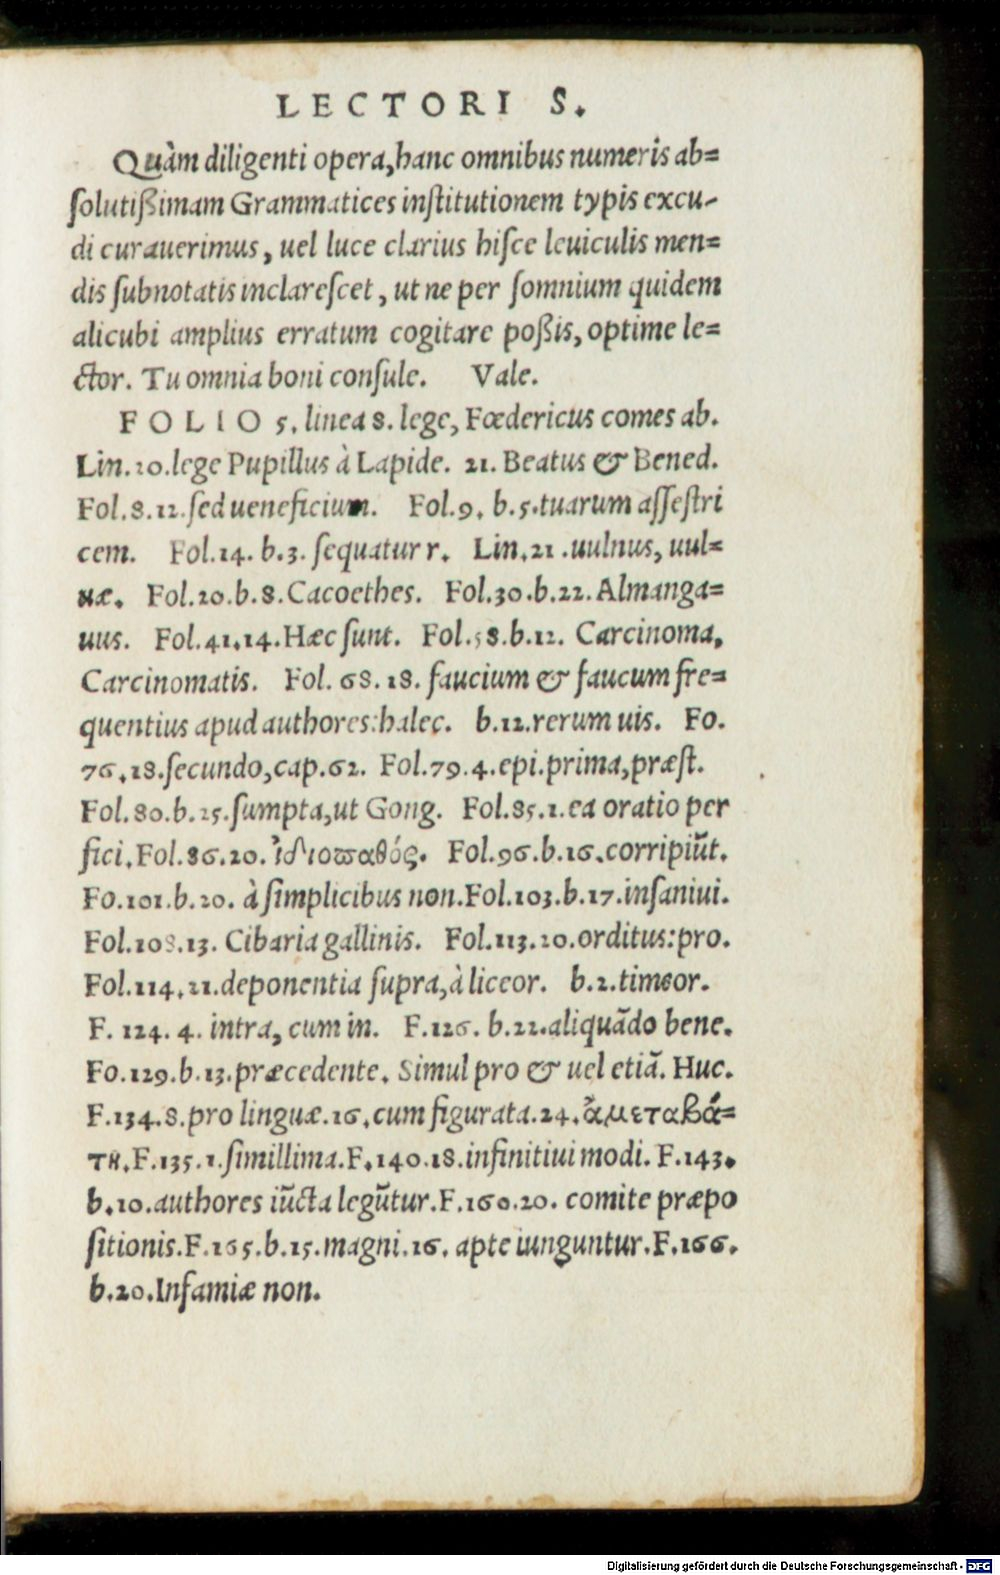 LECTORI S.
Quàm diligenti opera, hanc omnibus numeris ab=
solutißimam Grammatices institutionem typis excu-
di curauerimus, uel luce clarius hisce leuiculis men=
dis subnotatis inclarescet, ut ne per somnium quidem
alicubi amplius erratum cogitare poßis, optime le=
ctor. Tu omnia boni consule. Vale.
FOLIO 5. linea 8. lege, Fœdericus comes ab.
Lin. 20. lege Pupillus à Lapide. 21. Beatus & Bened.
Fol. 8. 12. sed ueneficium. Fol. 9. b. 5. tuarum assestri
cem. Fol. 14. b. 3. sequatur r. Lin. 21. uulnus, uul=
næ. Fol. 20. b. 8. Cacoethes. Fol. 30. b. 22. Almanga=
uus. Fol. 41. 14. Hæc sunt. Fol. 58. b. 12. Carcinoma,
Carcinomatis. Fol. 68. 18. faucium & faucum fre=
quentius apud authores: halec. b. 12. rerum uis. Fo.
76. 18. secundo, cap. 62. Fol. 79. 4. epi. prima, præst.
Fol. 80. b. 25. sumpta, ut Gong. Fol. 85. 1. ea oratio per
fici. Fol. 86. 20. ἰδιοπαθός. Fol. 96. b. 16. corripiūt.
Fo. 101. b. 20. à simplicibus non. Fol. 103. b. 17. insaniui.
Fol. 108. 13. Cibaria gallinis. Fol. 113. 20. orditus: pro.
Fol. 114. 21. deponentia supra, à liceor. b. 2. timeor.
F. 124. 4. intra, cum in. F. 126. b. 22. aliquādo bene.
Fo. 129. b. 13. præcedente. Simul pro & uel etiā. Huc.
F. 134. 8. pro linguæ. 16. cum figurata. 24. ἀμεταβά=
του. F. 135. 1. simillima. F. 140. 18. infinitiui modi. F. 143.
b. 10. authores iūcta legūtur. F. 160. 20. comite præpo
sitionis. F. 165. b. 15. magni. 16. apte iunguntur. F. 166.
b. 20. Infamiæ non.
Digitalisierung gefördert durch die Deutsche Forschungsgemeinschaft - DFG